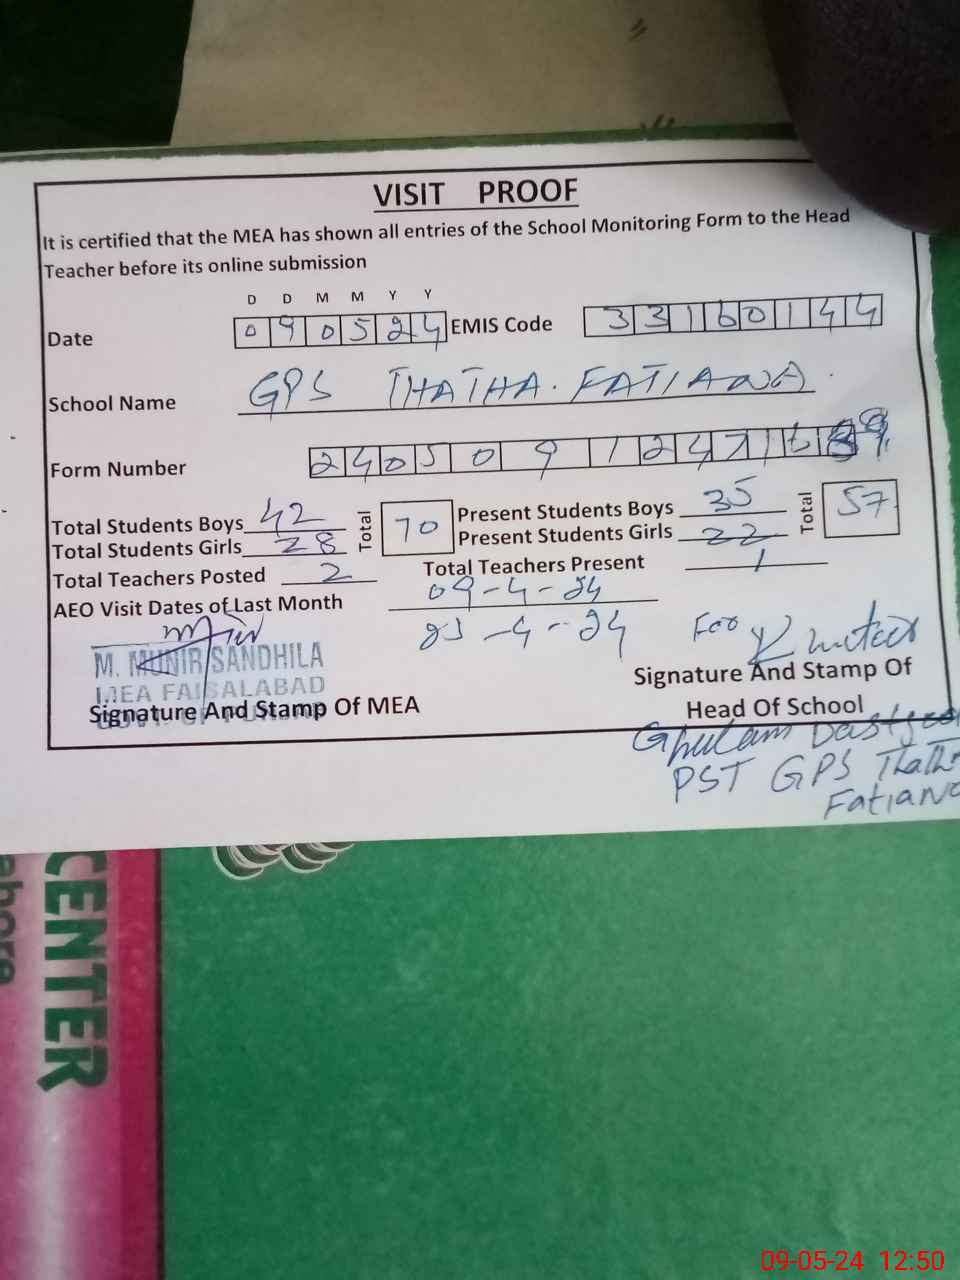 VISIT PROOF
It is certified that the MEA has shown all entries of the School Monitoring Form to the Head
Teacher before its online submission
D D M M Y Y
Date 090524 EMIS Code 33160144
School Name GPS THATHA. FATIANA.
Form Number 24050912471
Total Students Boys 42 Total 70 Present Students Boys 35 Total 57
Total Students Girls 28 Present Students Girls 22
Total Teachers Posted 2 Total Teachers Present 1
AEO Visit Dates of Last Month 09-4-24
-4-24
For
M. MUNIR SANDHILA
MEA FAISALABAD
Signature And Stamp Of MEA
Signature And Stamp Of
Head Of School
Ghulam
PST GPS Thath
Fatiana
CENTER
ahore
09-05-24 12:50